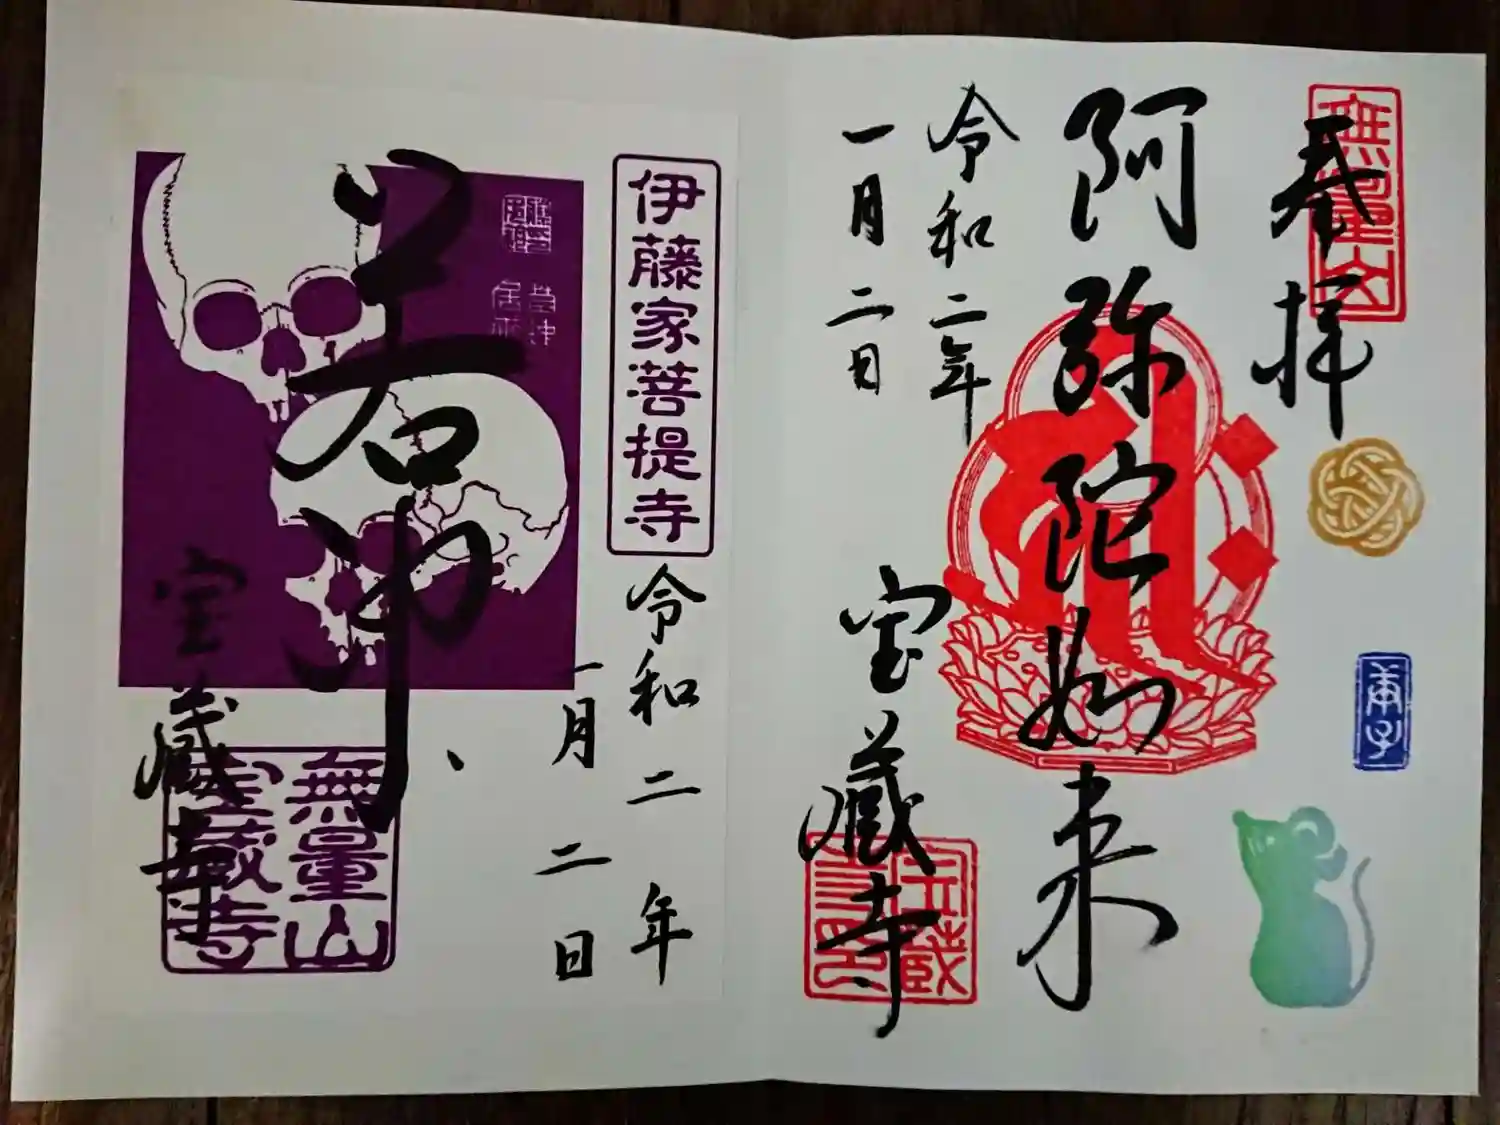 無量山
奉拝
庚子
阿弥陀如来
令和二年
一月二日
宝蔵寺
伊藤家菩提寺
令和二年
一月二日
若冲
宝蔵寺
無量山
宝蔵寺